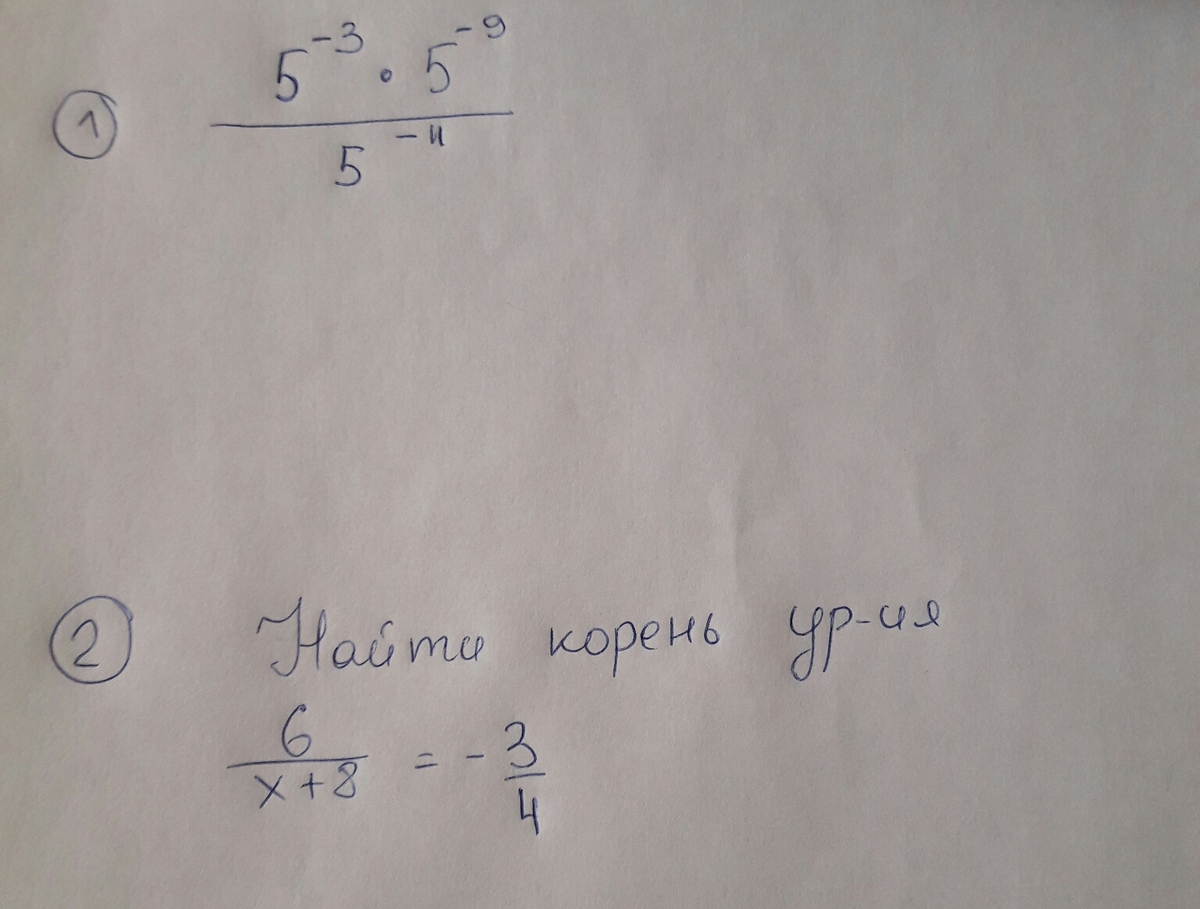 ① 5⁻³ · 5⁻⁹
5⁻¹¹
② Найти корень ур-ия
6/(x+8) = -3/4